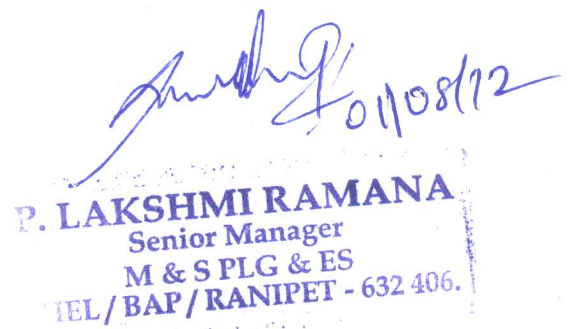 01/08/12
P. LAKSHMI RAMANA
Senior Manager
M & S PLG & ES
HEL / BAP / RANIPET - 632 406.